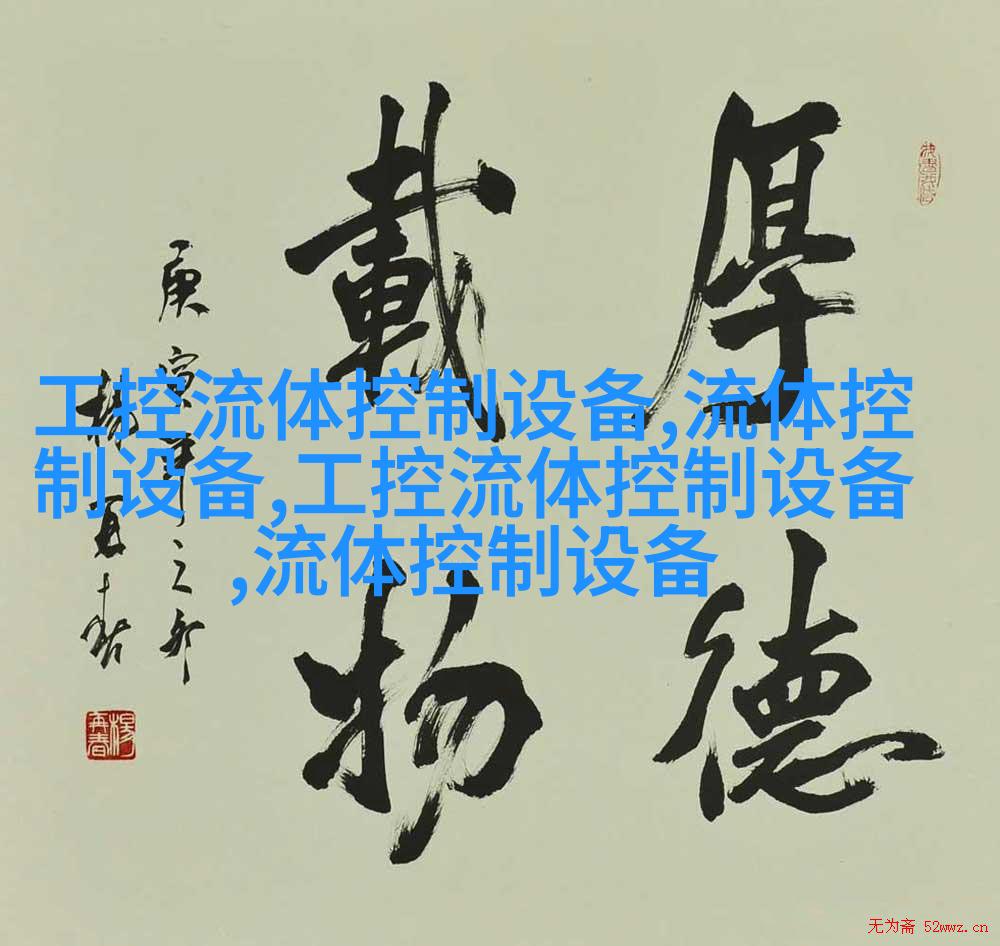 厚德
載物
庚寅年之卯
楊再春
楊再春
工控流体控制设备,流体控
制设备,工控流体控制设备
,流体控制设备
无为斋 52wwz.cn